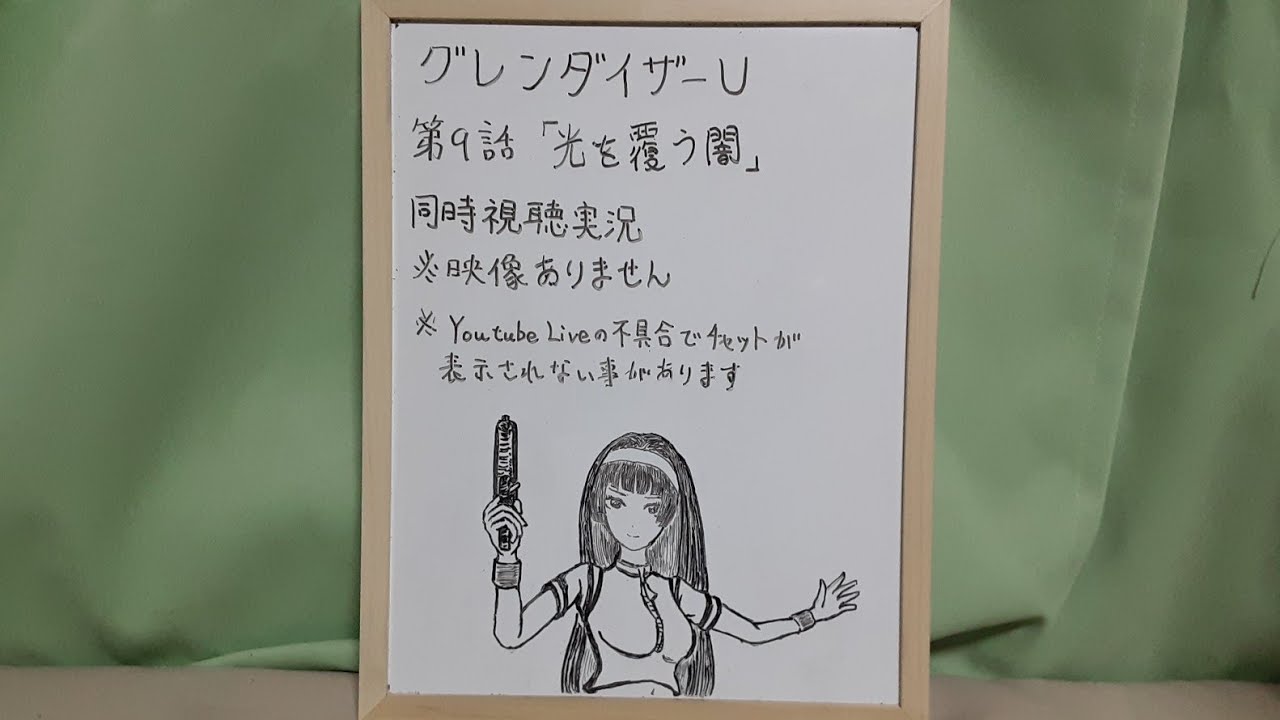 グレンダイザーU
第9話「光を覆う闇」
同時視聴実況
※映像ありません
※ Youtube Liveの不具合でチャットが
表示されない事があります